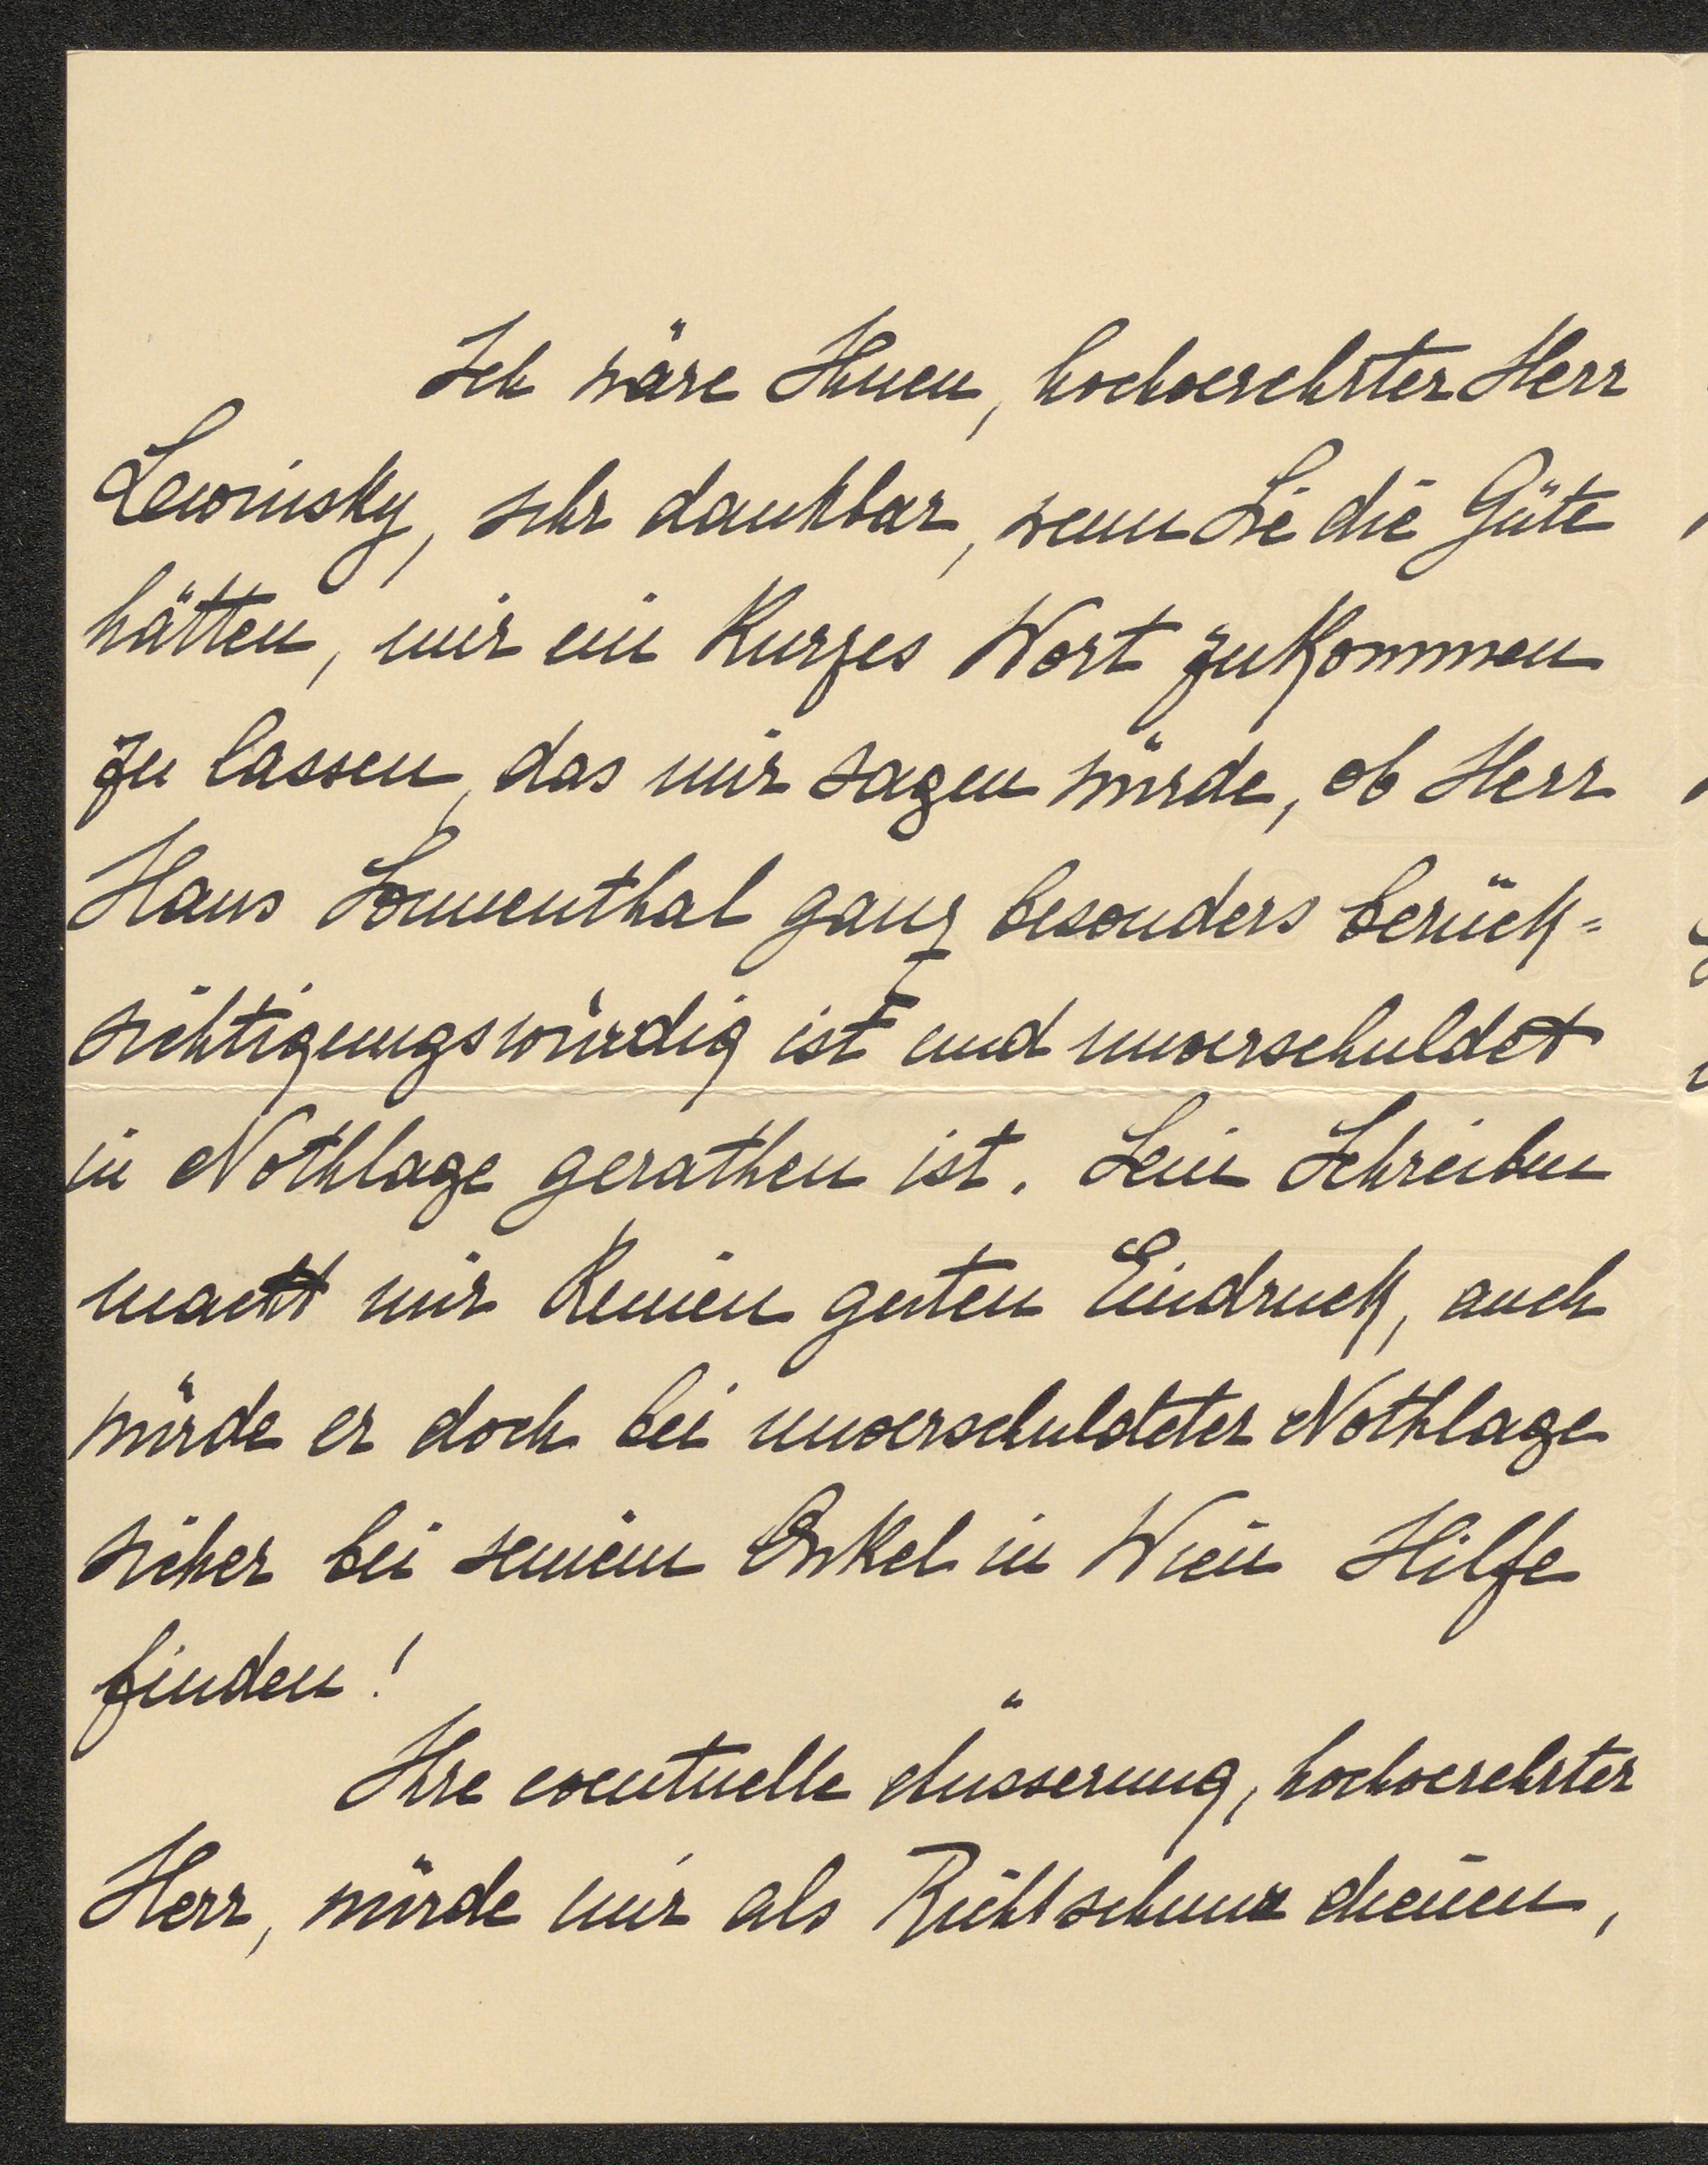 Ich wäre Ihnen, hochverehrter Herr
Lewinsky, sehr dankbar, wenn Sie die Güte
hätten, mir ein kurzes Wort zukommen
zu lassen, das mir sagen würde, ob Herr
Hans Sonnenthal ganz besonders berück=
sichtigungswürdig ist und unverschuldet
in Nothlage gerathen ist. Sein Schreiben
macht mir keinen guten Eindruck, auch
würde er doch bei unverschuldeter Nothlage
sicher bei seinem Onkel in Wien Hilfe
finden!
Ihre eventuelle Äusserung, hochverehrter
Herr, würde mir als Richtschnur dienen,